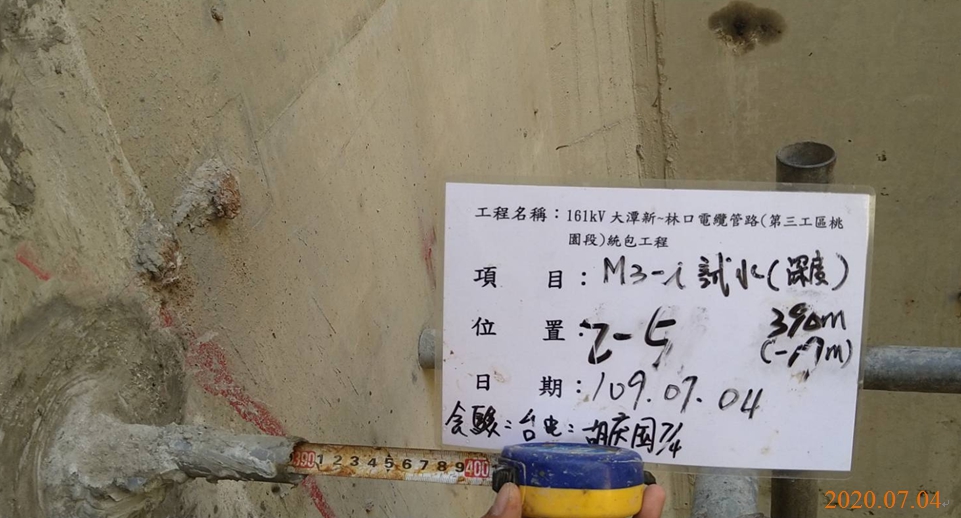 工程名稱：161kV 大潭新~林口電纜管路(第三工區桃
園段)統包工程
項 目：M3-i 試水(深度)
位 置：Z-5 390m
(-17m)
日 期：109.07.04
会驗：台电：胡庆国 7/4
390 1 2 3 4 5 6 7 8 9 400
2020.07.04